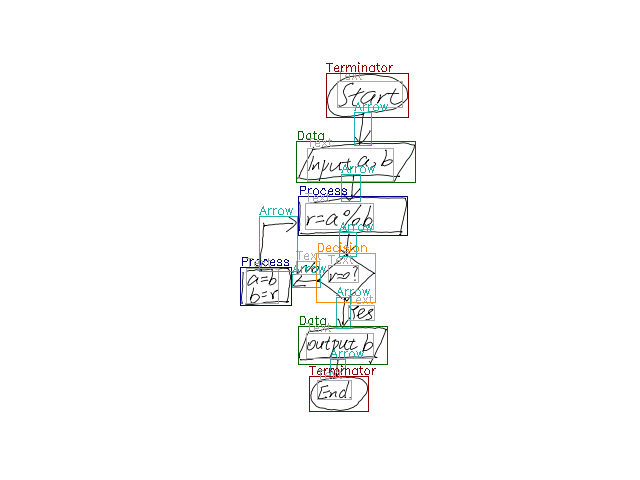 Terminator
Text
Start
Arrow
Data
Text
Input a, b
Arrow
Process
Text
r=a%b
Arrow
Arrow
Decision
Text
r=0?
Text
No
Arrow
Process
a=b
b=r
Arrow
Text
Yes
Data
Text
output b
Arrow
Terminator
End